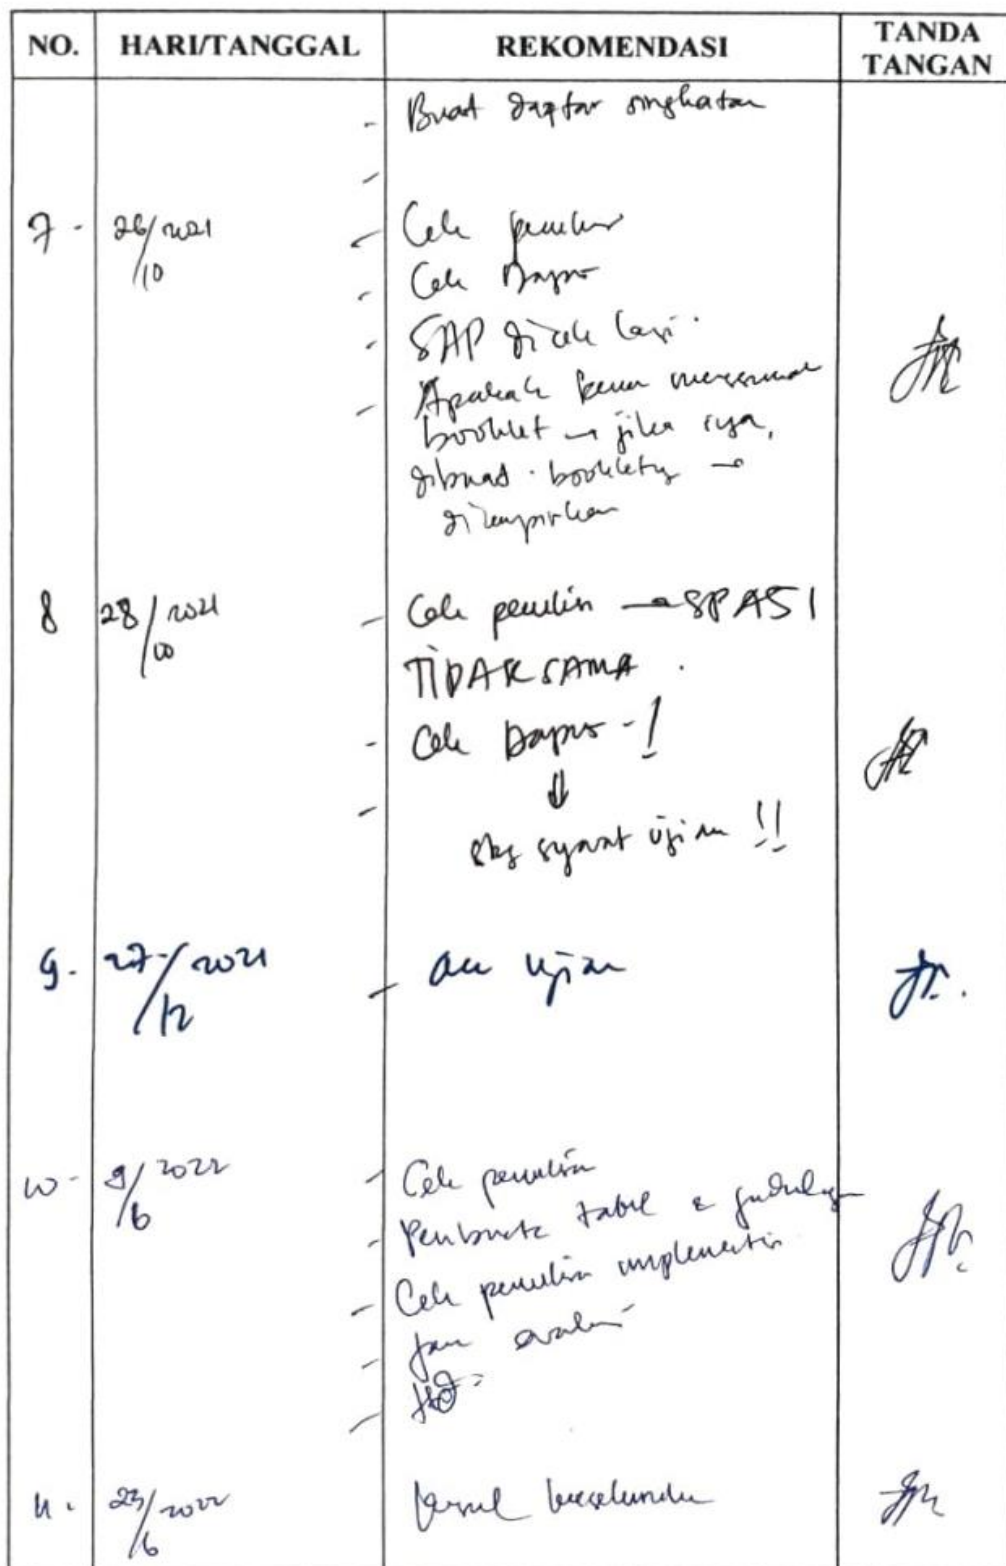 NO. HARI/TANGGAL REKOMENDASI TANDA TANGAN
- Buat daftar singkatan
-
7. 26/10 2021 - Cek
- Cek Dapus
- SAP dicek lagi.
- Apakah
booklet → jika iya,
dibuat bookletny →
dilampirkan
8 28/10 2021 - Cek penulisn → SPASI
TIDAK SAMA.
- Cek Dapus - !
↓
- sbg syarat ujian !!
9. 27/12 2021 - acc ujian
10. 9/6 2022 - Cek penulisn
- tabel
- Cek penulisn implementasi
- Jam evaluasi
-
11. 23/6 2022